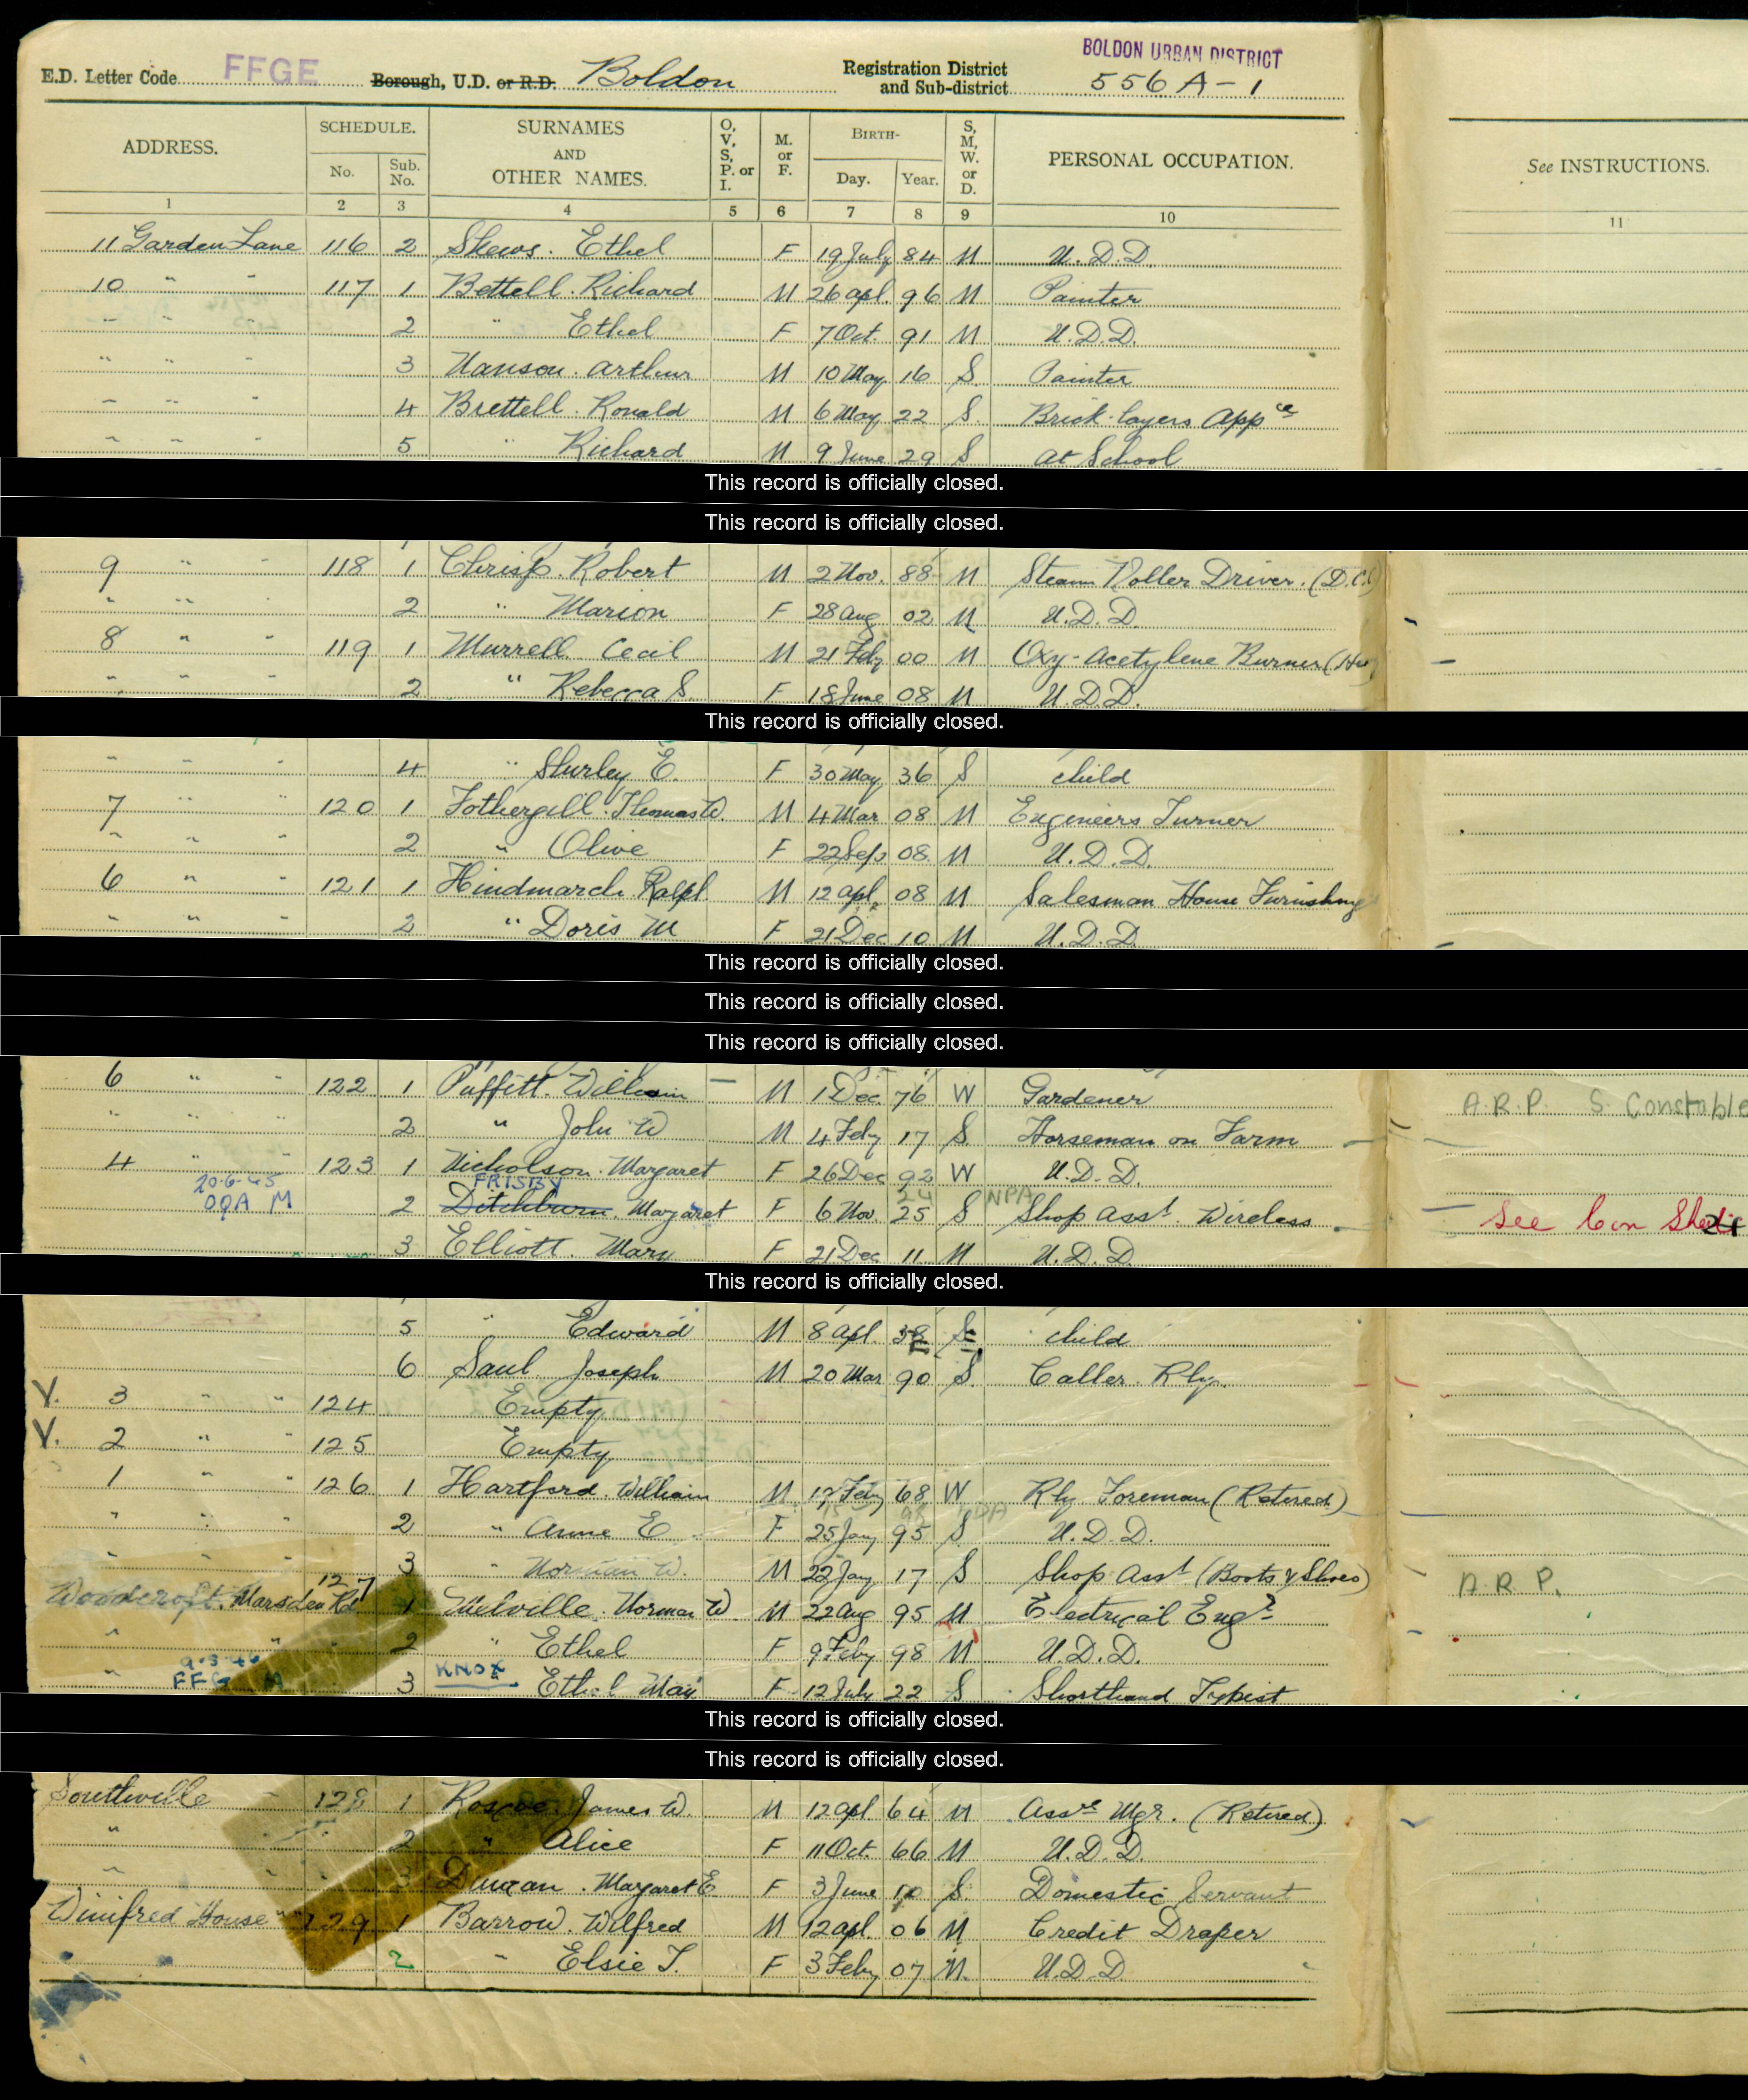 BOLDON URBAN DISTRICT
E.D. Letter Code FFGE Borough, U.D. or R.D. Boldon Registration District and Sub-district 556 A-1
ADDRESS. SCHEDULE. No. Sub. No. SURNAMES AND OTHER NAMES. O, V, S, P. or I. M. or F. BIRTH- Day. Year. S, M, W. or D. PERSONAL OCCUPATION. See INSTRUCTIONS.
1 2 3 4 5 6 7 8 9 10 11
11 Garden Lane 116 2 Skews. Ethel F 19 July 84 M U.D.D.
10 " " 117 1 Bettell. Richard M 26 apl. 96 M Painter
" " " 2 " Ethel F 7 Oct. 91 M U.D.D.
" " " 3 Hanson. Arthur M 10 May 16 S. Painter
" " " 4 Brettell. Ronald M 6 May 22 S. Brick-layers Appce
" " " 5 " Richard M 9 June 29 S at School
This record is officially closed.
This record is officially closed.
9 " " 118 1 Chrisp. Robert M 2 Nov. 88 M Steam Roller Driver. (D.C.C)
" " " 2 " Marion F 28 Aug 02 M U.D.D.
8 " " 119 1 Murrell Cecil M 21 Feby 00 M Oxy-Acetylene Burner
" " " 2 " Rebecca S. F 18 June 08 M U.D.D.
This record is officially closed.
" " " 4 " Shurley E. F 30 May 36 S child
7 " " 120 1 Fothergill. Thomas W. M 4 Mar 08 M Engineers Turner
" " " 2 " Olive F 22 Sep. 08 M U.D.D.
6 " " 121 1 Hindmarch Ralph M 12 apl. 08 M Salesman House Furnishing
" " " 2 " Doris M F 21 Dec 10 M U.D.D.
This record is officially closed.
This record is officially closed.
This record is officially closed.
6 " " 122 1 Puffitt. William — M 1 Dec 76 W Gardener A.R.P. S. Constable
" " " 2 " John W M 4 Feby 17 S Horseman on Farm
4 " " 123 1 Nicholson. Margaret F 26 Dec 92 W U.D.D.
20-6-45 FRISBY 24 NPA
OQA M 2 Ditchburn. Margaret F 6 Nov. 25 S Shop Asst. Wireless See Con Sheet
3 Elliott. Mary F 21 Dec 11 M U.D.D.
This record is officially closed.
5 " Edward M 8 apl. 38 S child
6 Saul Joseph M 20 Mar 90 S. Caller. Rly.
V. 3 " " 124 Empty
V. 2 " " 125 Empty
1 " " 126 1 Hartford. William M 17 Feby 68 W Rly Foreman (Retired)
" " " 2 " Anne E F 25 Jany 95 S U.D.D.
" " " 3 " Norman W. M 22 Jany 17 S Shop Asst (Boots & Shoes) A.R.P.
Woodcroft. Marsden Rd 127 1 Melville. Norman W M 22 Aug 95 M Electrical Engr
" " " 2 " Ethel F 9 Feby 98 M U.D.D.
9-3-46 KNOX
3 " Ethel May F 12 July 22 S Shorthand Typist
This record is officially closed.
This record is officially closed.
Southville 128 1 Roscoe. James W. M 12 apl 64 M Assce Mgr. (Retired)
" " 2 " Alice F 11 Oct. 66 M U.D.D.
" " 3 Duncan. Margaret E F 3 June 10 S. Domestic Servant
Winifred House 129 1 Barrow. Wilfred M 12 apl. 06 M Credit Draper
2 " Elsie T. F 3 Feby 07 M. U.D.D